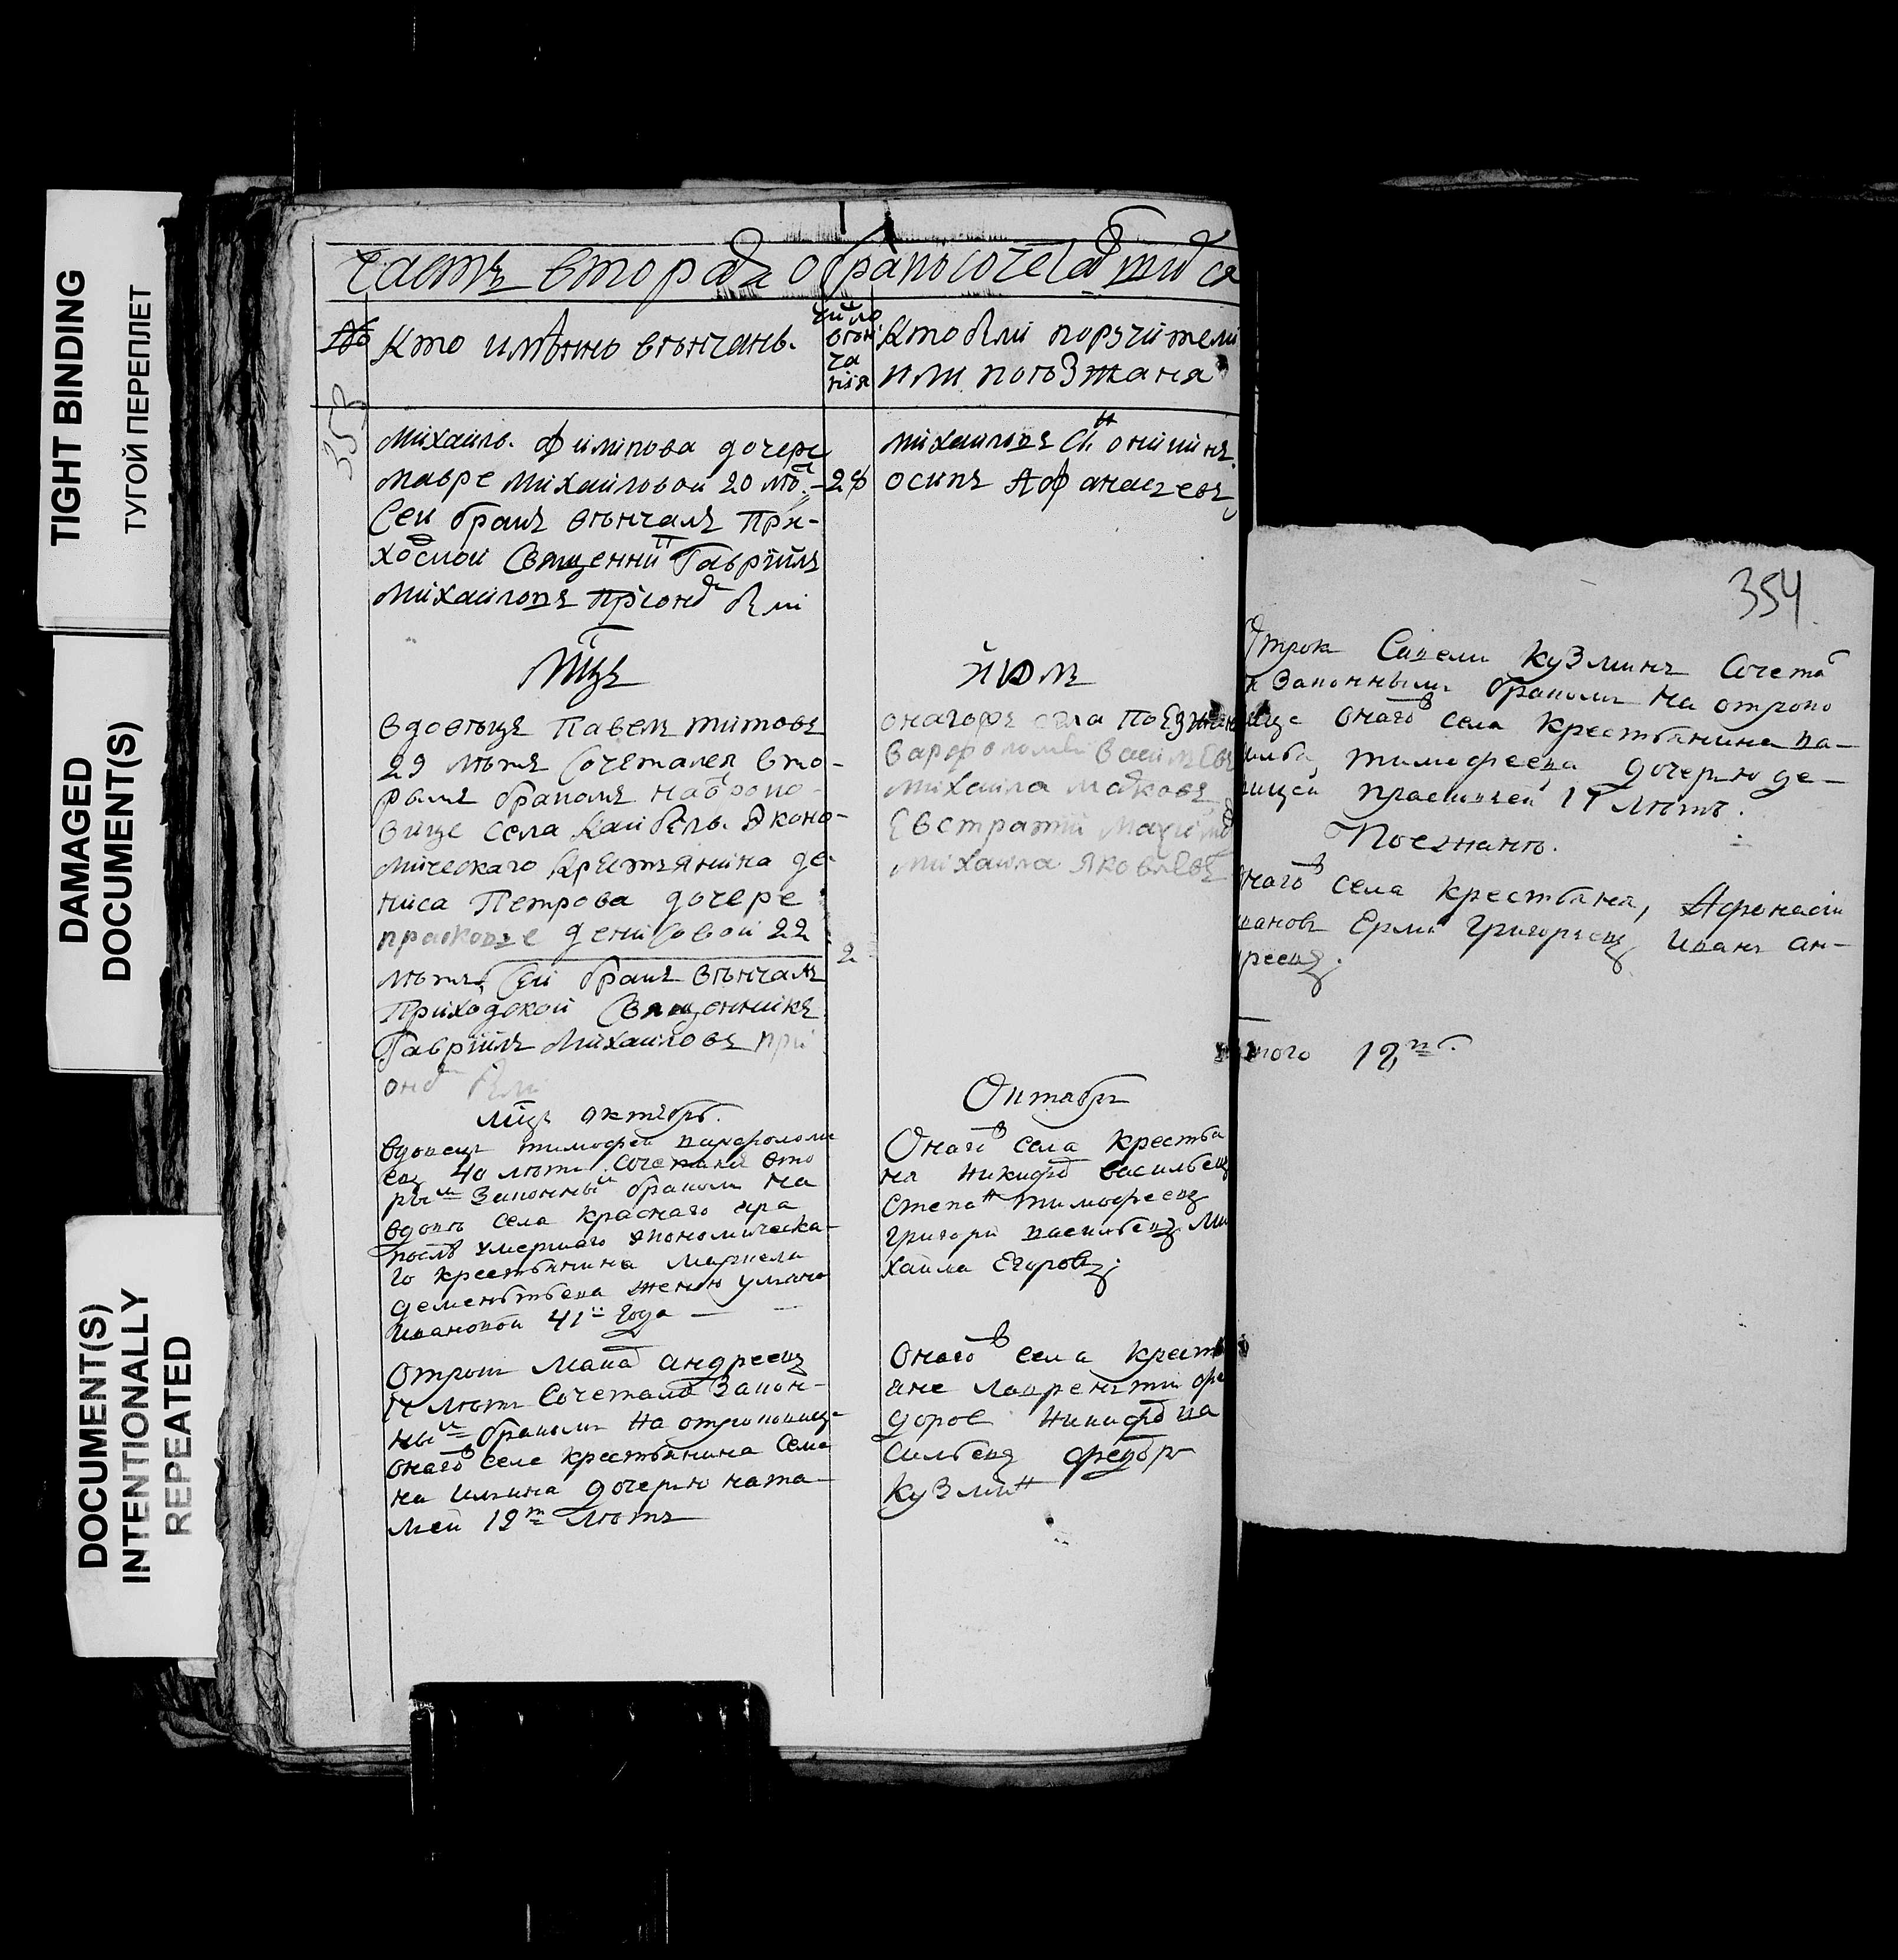 TIGHT BINDING
ТУГОЙ ПЕРЕПЛЕТ
DAMAGED
DOCUMENT(S)
DOCUMENT(S)
INTENTIONALLY
REPEATED
часть вторая о бракосочетав
№
Кто имѣнно вѣнчанъ.
число
вѣн
ча
нїя
Кто были поручители
или поѣзжаня
353
Михаилъ Филипова дочере
Мавре Михаиловой 20 лѣ
28
Сеи бракъ вѣнчалъ При-
хоцкой Священни Гаврїилъ
Михаиловъ при онд были
Михаиловъ
осипъ Афанасьевъ
Мцъ
вдовецъ Павелъ титовъ
29 лѣтъ сочетался вто-
рымъ бракомъ на
вице села Каибелъ Эконо-
мическаго Крестьянина де-
ниса Петрова дочере
прасковье денисовой 22
2
лѣтъ, Сеи бракъ вѣнчалъ
Приходской Священникъ
Гаврїилъ Михаиловъ при
онд были
июль
онагожъ села Поезжаня
варфоломеи Василевъ
Михаила Марковъ
Евстратии
Михаила Яковлевъ
мцъ октябрь.
вдовецъ тимофеи варфоломе
евъ 40 лѣтъ сочетался вто
рым законны бракомъ на
вдовѣ села краснаго яра
послѣ умершаго экономическа-
го крестьянина
дементьева женою ульяною
ивановой 41 года
Октябрь
Онаго села крестья
на Никифо васильевъ
степан тимофеевъ
григори васильевъ Ми
хаила Егоровъ.
отрокъ андреевъ
17 лѣтъ сочетался закон-
ны бракомъ на отроковиц
онаго селе крестьянина семе
на ильина дочерью ната
лией 19 лѣтъ
Онаго села кресть
яне лаврентии фе
доров Никифо ва
сильевъ федоръ
кузмин
354
отрок Савели кузминъ сочета
законнымъ бракомъ на отроко
вице онаго села крестьянина ва-
силья тимофеева дочерью де-
вицей прасковеей 17 лѣтъ.
Поезжане.
онаго села крестьяня, Афонасии
ивановъ Ерми григорьевъ иванъ ан-
дреевъ.
итого 12